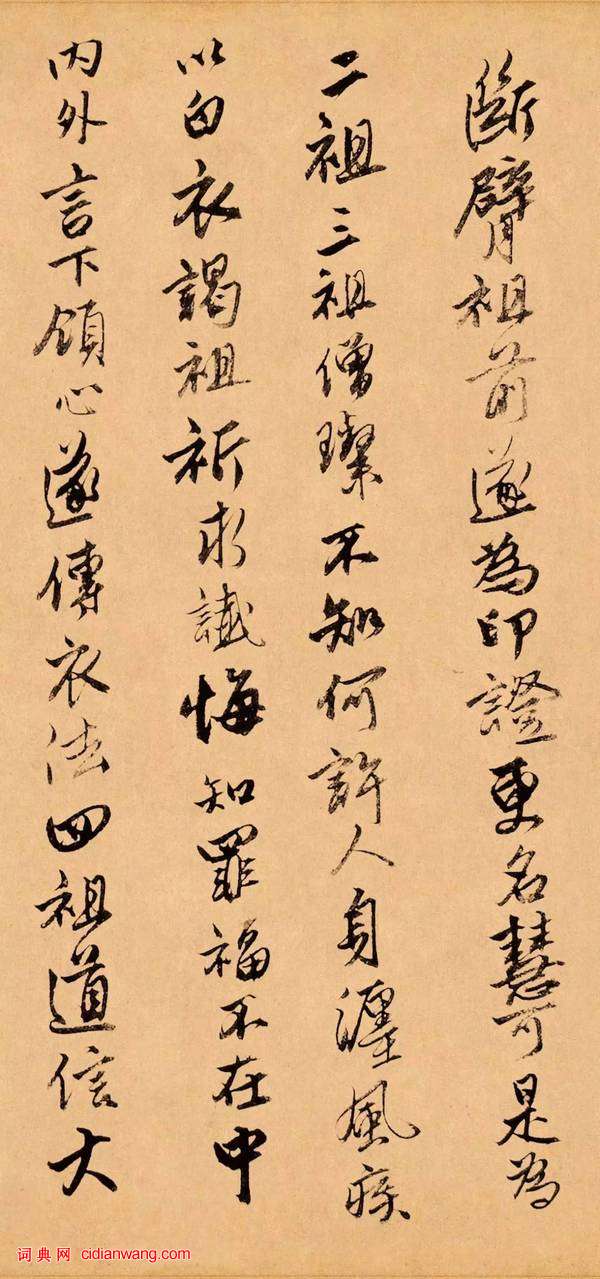 斷臂祖前遂為印證更名慧可是為
二祖三祖僧璨不知何許人身瀍風疾
以白衣謁祖祈求讖悔知罪福不在中
内外言下領心遂傳衣法四祖道信大
词典网 cidianwang.com